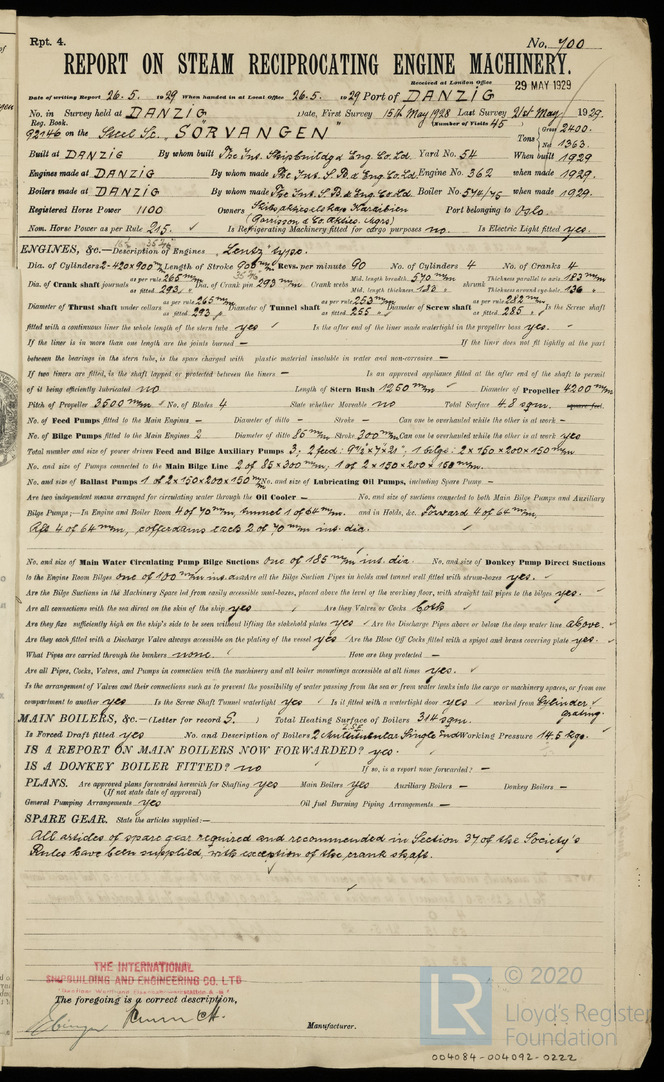 Rpt. 4.
No. 700
REPORT ON STEAM RECIPROCATING ENGINE MACHINERY.
Received at London Office 29 MAY 1929
Date of writing Report 26.5. 1929 When handed in at Local Office 26.5. 1929 Port of DANZIG
No. in Survey held at DANZIG Date, First Survey 15th May 1928 Last Survey 21st May 1929.
Reg. Book. (Number of Visits 45)
92746 on the Steel Sc. "SÖRVANGEN" Tons Gross 2400. Net 1363.
Built at DANZIG By whom built The Int. Shipbuildg & Eng. Co. Ld. Yard No. 54 When built 1929
Engines made at DANZIG By whom made The Int. S.B. & Eng. Co. Ld. Engine No. 362 when made 1929.
Boilers made at DANZIG By whom made The Int. S.B. & Eng. Co. Ld. Boiler No. 574/75 when made 1929.
Registered Horse Power 1100 Owners Skibsaktieselskap Karaibien Port belonging to Oslo.
Nom. Horse Power as per Rule 215. Is Refrigerating Machinery fitted for cargo purposes no. Is Electric Light fitted yes.
ENGINES, &c.—Description of Engines "Lentz" type.
Dia. of Cylinders 2-420x900 Length of Stroke 900 m/m Revs. per minute 90 No. of Cylinders 4 No. of Cranks 4
Dia. of Crank shaft journals as per rule 265 m/m as fitted 293 " Dia. of Crank pin 293 m/m Crank webs Mid. length breadth 570 m/m Mid. length thickness 183 " shrunk Thickness parallel to axis 183 m/m Thickness around eye-hole 136 "
Diameter of Thrust shaft under collars as per rule 265 m/m as fitted 293 " Diameter of Tunnel shaft as per rule 253 m/m as fitted 255 " Diameter of Screw shaft as per rule 282 m/m as fitted 285 " Is the Screw shaft
fitted with a continuous liner the whole length of the stern tube yes Is the after end of the liner made watertight in the propeller boss yes.
If the liner is in more than one length are the joints burned – If the liner does not fit tightly at the part
between the bearings in the stern tube, is the space charged with plastic material insoluble in water and non-corrosive –
If two liners are fitted, is the shaft lapped or protected between the liners – Is an approved appliance fitted at the after end of the shaft to permit
of it being efficiently lubricated no Length of Stern Bush 1250 m/m Diameter of Propeller 4200 m/m
Pitch of Propeller 3500 m/m No. of Blades 4 State whether Moveable no Total Surface 4.8 sqm. square feet.
No. of Feed Pumps fitted to the Main Engines – Diameter of ditto – Stroke – Can one be overhauled while the other is at work –
No. of Bilge Pumps fitted to the Main Engines 2 Diameter of ditto 85 m/m Stroke 300 m/m Can one be overhauled while the other is at work yes
Total number and size of power driven Feed and Bilge Auxiliary Pumps 3; 2 feed: 9½"x7"x21" 1 bilge: 2x150x200x150 m/m
No. and size of Pumps connected to the Main Bilge Line 2 of 85x300 m/m, 1 of 2x150x200x150 m/m.
No. and size of Ballast Pumps 1 of 2x150x200x150 m/m No. and size of Lubricating Oil Pumps, including Spare Pump –
Are two independent means arranged for circulating water through the Oil Cooler – No. and size of suctions connected to both Main Bilge Pumps and Auxiliary
Bilge Pumps;—In Engine and Boiler Room 4 of 70 m/m, tunnel 1 of 64 m/m. and in Holds, &c. Forward 4 of 64 m/m,
Aft 4 of 64 m/m, cofferdams each 2 of 70 m/m ins. dia.
No. and size of Main Water Circulating Pump Bilge Suctions one of 185 m/m ins. dia No. and size of Donkey Pump Direct Suctions
to the Engine Room Bilges one of 100 m/m ins. dia Are all the Bilge Suction Pipes in holds and tunnel well fitted with strum-boxes yes.
Are the Bilge Suctions in the Machinery Space led from easily accessible mud-boxes, placed above the level of the working floor, with straight tail pipes to the bilges yes.
Are all connections with the sea direct on the skin of the ship yes Are they Valves or Cocks both
Are they fixed sufficiently high on the ship's side to be seen without lifting the stokehold plates yes Are the Discharge Pipes above or below the deep water line above.
Are they each fitted with a Discharge Valve always accessible on the plating of the vessel yes Are the Blow Off Cocks fitted with a spigot and brass covering plate yes.
What Pipes are carried through the bunkers none. How are they protected –
Are all Pipes, Cocks, Valves, and Pumps in connection with the machinery and all boiler mountings accessible at all times yes.
Is the arrangement of Valves and their connections such as to prevent the possibility of water passing from the sea or from water tanks into the cargo or machinery spaces, or from one
compartment to another yes Is the Screw Shaft Tunnel watertight yes Is it fitted with a watertight door yes worked from Cylinder grating.
MAIN BOILERS, &c.—(Letter for record S.) Total Heating Surface of Boilers 314 sqm.
Is Forced Draft fitted yes No. and Description of Boilers 2 Multitubular Single End Working Pressure 14.5 kgs.
IS A REPORT ON MAIN BOILERS NOW FORWARDED? yes.
IS A DONKEY BOILER FITTED? no If so, is a report now forwarded? –
PLANS. Are approved plans forwarded herewith for Shafting yes Main Boilers yes Auxiliary Boilers – Donkey Boilers –
(If not state date of approval)
General Pumping Arrangements yes Oil fuel Burning Piping Arrangements –
SPARE GEAR. State the articles supplied:—
All articles of spare gear required and recommended in Section 37 of the Society's
Rules have been supplied, with exception of the crank shaft.
THE INTERNATIONAL
SHIPBUILDING AND ENGINEERING CO. LTD
The foregoing is a correct description,
Manufacturer.
LR © 2020
Lloyd's Register
Foundation
004084-004092-0222